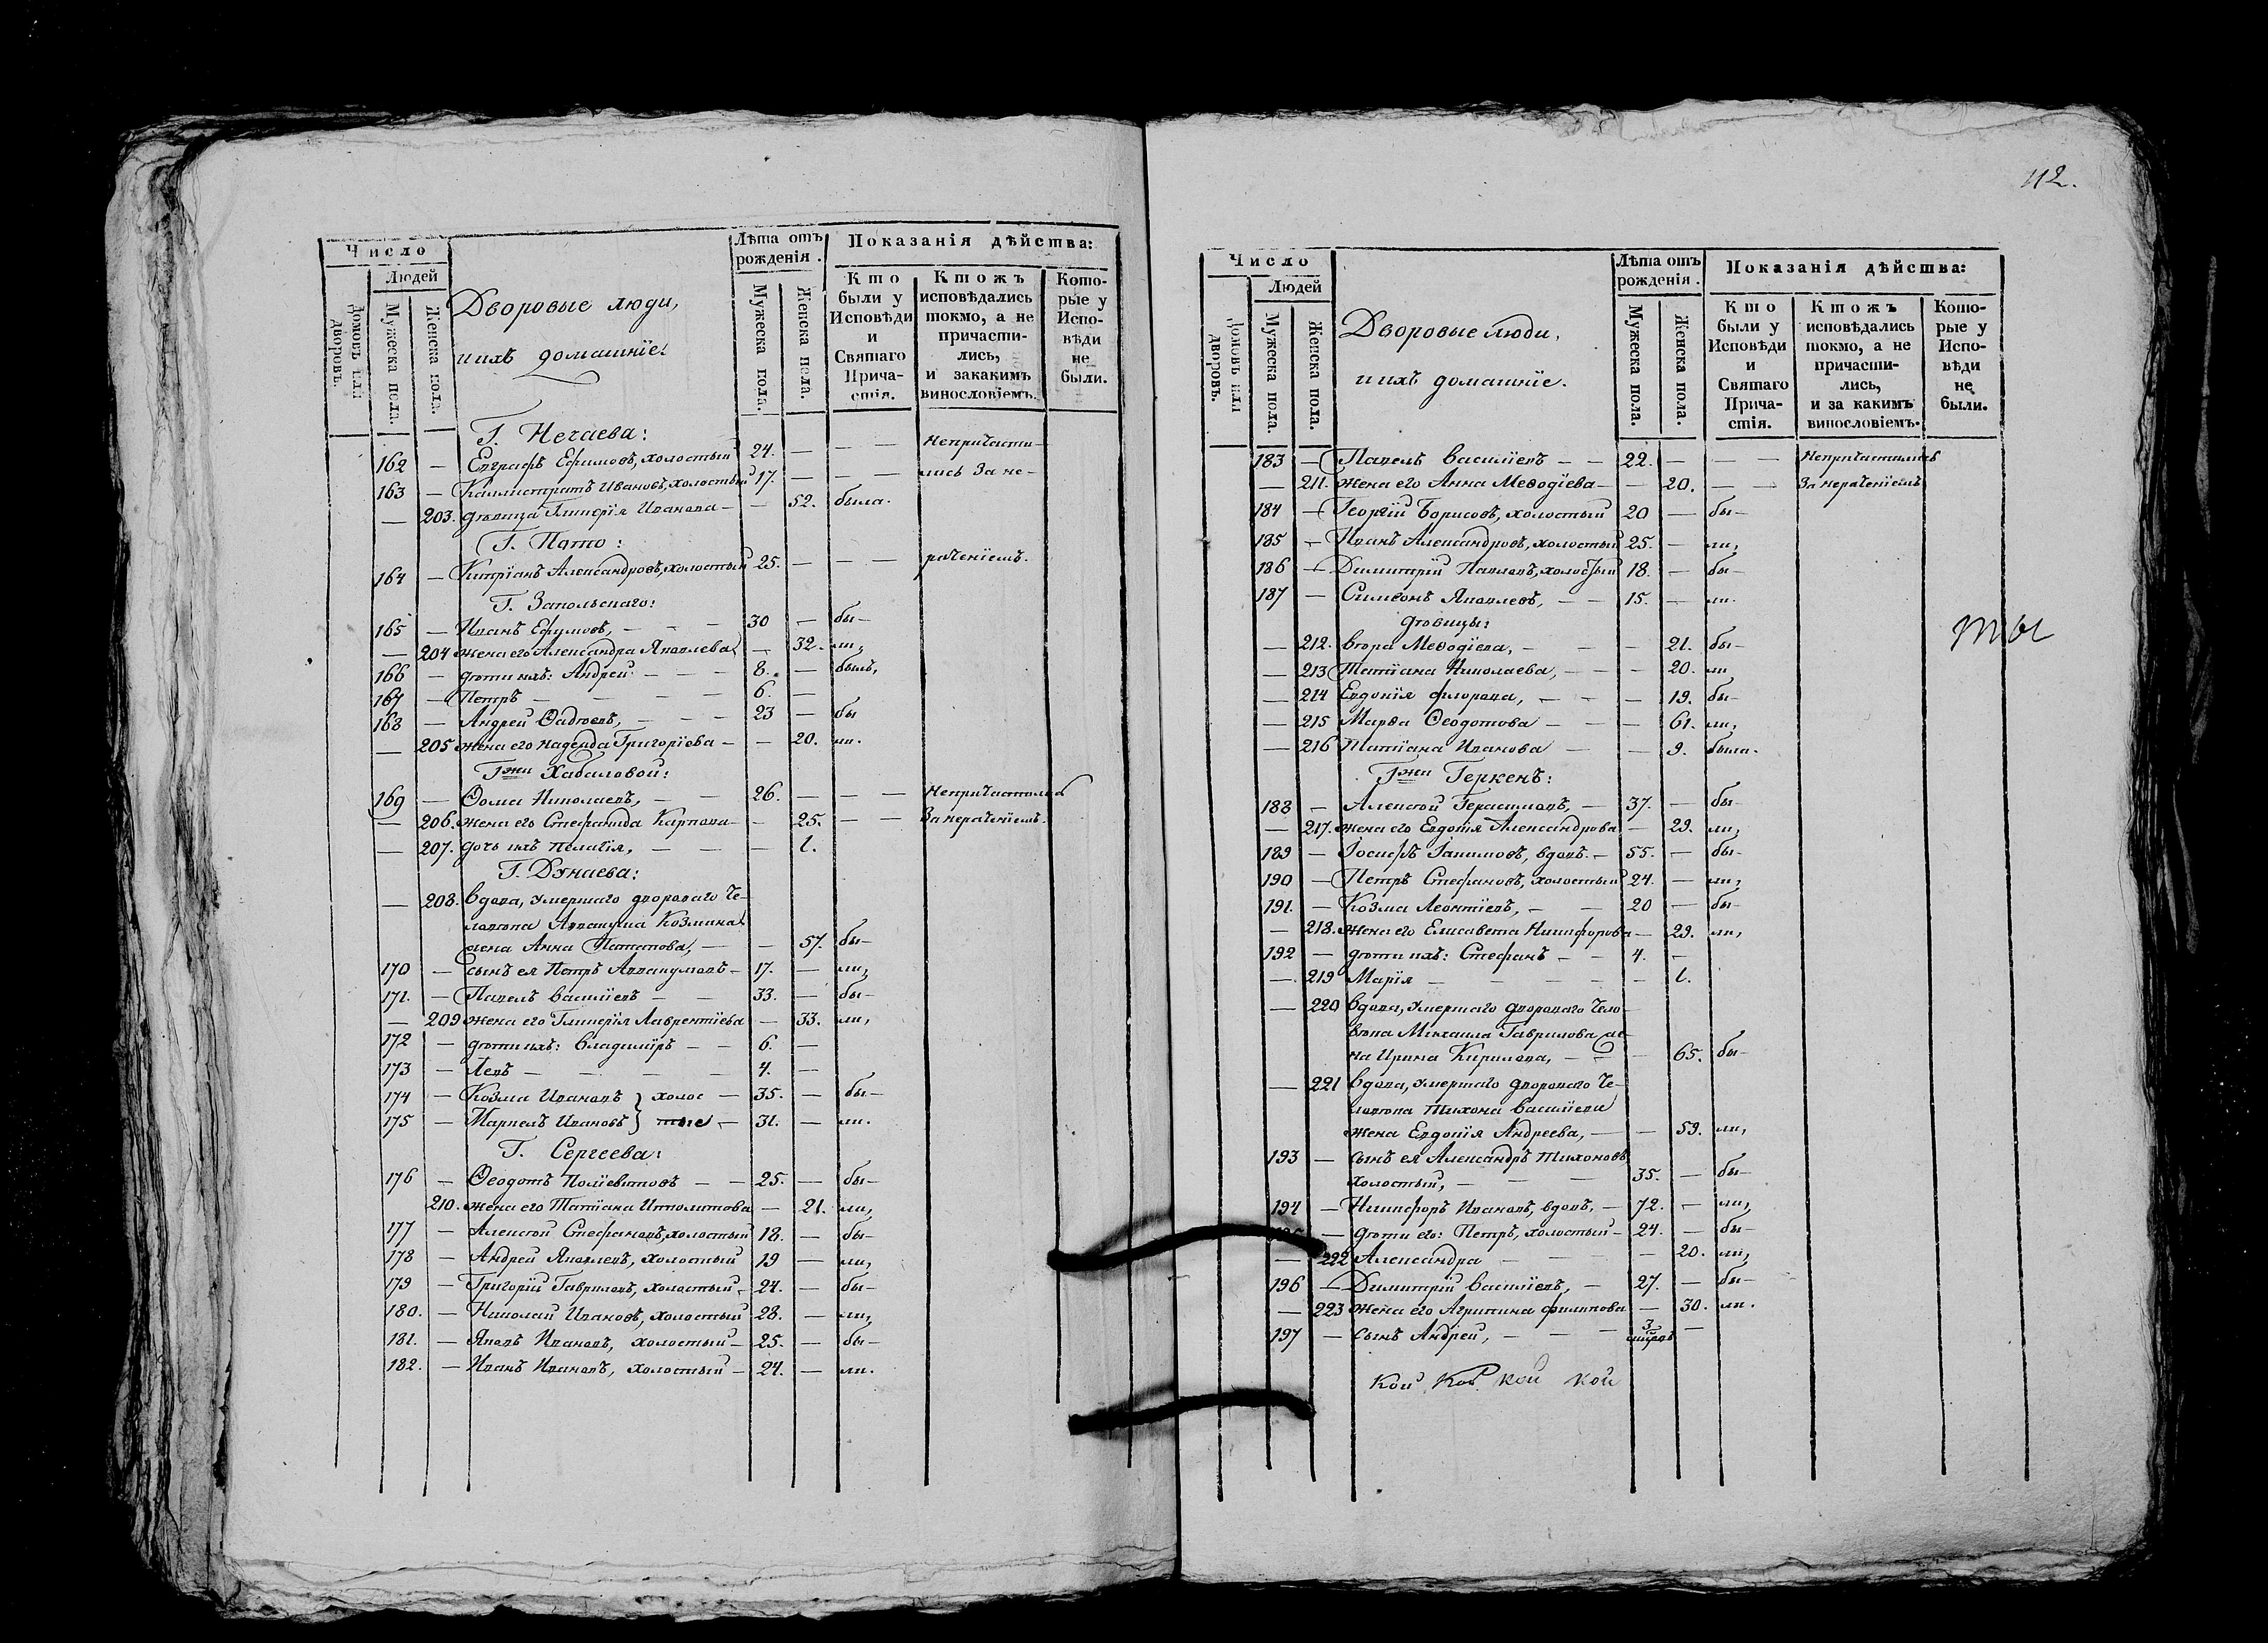 Число
Людей
Домовъ или дворовъ.
Мужеска пола.
Женска пола.
Дворовые люди,
и ихъ домашніе:
Лѣта отъ рожденія.
Мужеска пола.
Женска пола.
Показанія дѣйства:
Кто были у Исповѣди и Святаго Причастія.
Ктожъ исповѣдались токмо, а не причастились, и закакимъ винословіемъ.
Которые у Исповѣди не были.
Г. Нечаева:
162 — Евграфъ Ефимовъ, холостый 24. — — — Непричасти-
163 — Каллистратъ Ивановъ, холостый 17. — — — лись За не-
— 203. дѣвица Гликерія Иванова — — 52. была.
Г. Пато:
164 — Кипріанъ Александровъ, холостый 25. — — — раченіемъ.
Г. Запольскаго:
165 — Иванъ Ефимовъ, — — — 30 — бы-
— 204 жена его Александра Яковлева — 32. ли,
166 — дѣти ихъ: Андрей — — — 8. — былъ,
167 — Петръ — — — — 6. —
168 — Андрей Фадѣевъ, — — — 23 — бы
— 205 жена его Надежда Григоріева — — 20. ли.
Гжи Хабаловой:
169 — Ѳома Николаевъ, — — 26. — — — Непричастились
— 206. жена его Стефанида Карпова — — 25. — — За нераченіемъ.
— 207. дочь ихъ Пелагія, — — — 1.
Г. Дунаева:
— 208. вдова, умершаго двороваго че-
ловѣка Аввакума Козмина
жена Анна Потапова, — — 57. бы-
170 — сынъ ея Петръ Аввакумовъ — 17. — ли,
171. — Павелъ Васильевъ — — 33. — бы-
— 209 жена его Гликерія Лаврентіева — 33. ли,
172 — дѣти ихъ: Владиміръ — — 6. —
173 — Левъ — — — — 4. —
174 — Козма Ивановъ } холос — 35. — бы-
175 — Маркелъ Ивановъ } тые — 31. — ли.
Г. Сергеева:
176 — Ѳеодотъ Поліевктовъ — — 25. — бы-
210. жена его Татіана Ипполитова — 21. ли,
177 — Алексѣй Стефановъ, холостый 18. — бы-
178 — Андрей Яковлевъ, холостый 19 — ли,
179 — Григорій Гавриловъ, холостый — 24. — бы-
180. — Николай Ивановъ, холостый 28. — ли,
181. — Яковъ Ивановъ, холостый — 25. — бы-
182. — Иванъ Ивановъ, холостый — 24. — ли.
112.
Число
Людей
Домовъ или дворовъ.
Мужеска пола.
Женска пола.
Дворовые люди,
и ихъ домашніе.
Лѣта отъ рожденія.
Мужеска пола.
Женска пола.
Показанія дѣйства:
Кто были у Исповѣди и Святаго Причастія.
Ктожъ исповѣдались токмо, а не причастились, и за какимъ винословіемъ.
Которые у Исповѣди не были.
183 — Павелъ Васильевъ — — 22. — — — Непричастились
— 211. жена его Анна Меѳодіева — — 20. — — За нераченіемъ
184 — Георгій Борисовъ, холостый 20 — бы-
185 — Иванъ Александровъ, холостый 25. — ли,
186 — Димитрій Павловъ, холостый 18. — бы-
187 — Симеонъ Яковлевъ, — — 15. — ли.
дѣвицы:
— 212. Вѣра Меѳодіева, — — — 21. бы-
— 213 Татіана Николаева, — — — 20. ли
— 214 Евдокія Флорова, — — — 19. бы-
— 215 Марѳа Ѳеодотова — — — 61. ли,
— 216 Татіана Иванова — — 9. была.
Гжи Геркенъ:
188 — Алексѣй Герасимовъ, — 37. — бы-
— 217. жена его Евдокія Александрова — 29. ли,
189 — Іосифъ Іакимовъ, вдовъ. — 55. — бы-
190 — Петръ Стефановъ, холостый 24. — ли,
191. — Козма Леонтіевъ, — — 20 — бы-
— 218. жена его Елисавета Никифорова — 29. ли,
192 — дѣти ихъ: Стефанъ — — 4. —
— 219 Марія — — — — — 1.
— 220 Вдова, умершаго двороваго чело-
вѣка Михаила Гаврилова же-
на Ирина Кирилова, — — — 65. бы-
— 221 Вдова, умершаго двороваго че-
ловѣка Тихона Васильева
жена Евдокія Андреева, — — 59. ли,
193 — сынъ ея Александръ Тихоновъ
холостый, — — — 35. — бы-
194 — Никифоръ Ивановъ, вдовъ, — 72. — ли,
— дѣти его: Петръ, холостый — 24. — бы-
— 222 Александра — — — 20. ли,
196 — Димитрій Васильевъ, — 27. — бы-
— 223 жена его Агрипина Филипова — 30. ли.
197 — сынъ Андрей, — — — 3 —
кой кой кой